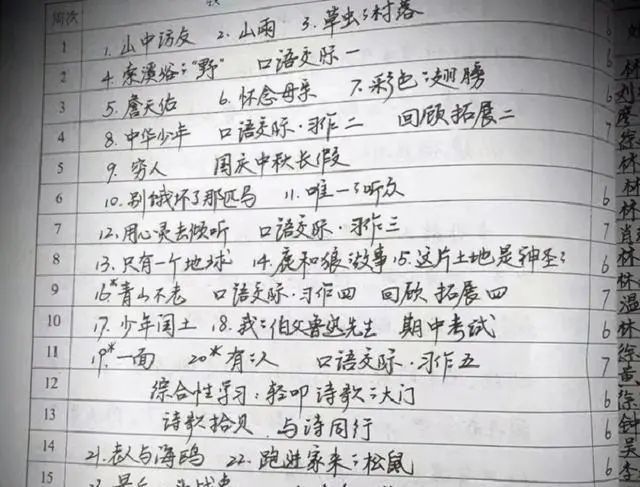 周次
1 1.山中访友 2.山雨 3.草虫的村落 6
2 4.索溪峪的"野" 口语交际一 6
3 5.詹天佑 6.怀念母亲 7.彩色的翅膀
4 8.中华少年 口语交际·习作二 回顾拓展二
5 9.穷人 国庆中秋长假
6 10.别饿坏了那匹马 11.唯一的听众 6
7 12.用心灵去倾听 口语交际·习作三 7
8 13.只有一个地球 14.鹿和狼的故事 15.这片土地是神圣的 6
9 16*青山不老 口语交际·习作四 回顾拓展四 7
10 17.少年闰土 18.我的伯父鲁迅先生 期中考试 6
11 19*一面 20*有的人 口语交际·习作五 7
12 综合性学习:轻叩诗歌的大门 6
13 诗歌拾贝 与诗同行 6
14 21.老人与海鸥 22.跑进家来的松鼠 6
15
林
刘
徐
林
林
林
肖
林
林
温
林
徐
黄
徐
钟
吴
李